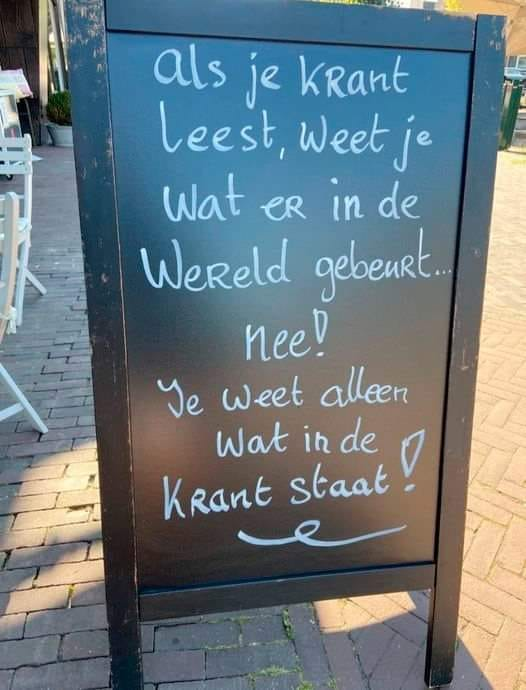 als je krant
leest, weet je
wat er in de
wereld gebeurt...
nee!
Je weet alleen
wat in de
krant staat!